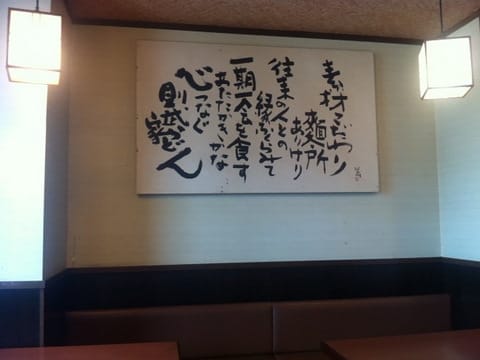 素材こだわり
麺所
ありけり
往来の人との
一期一会を食す
あたたかき かな
心つなぐ
則武
うどん